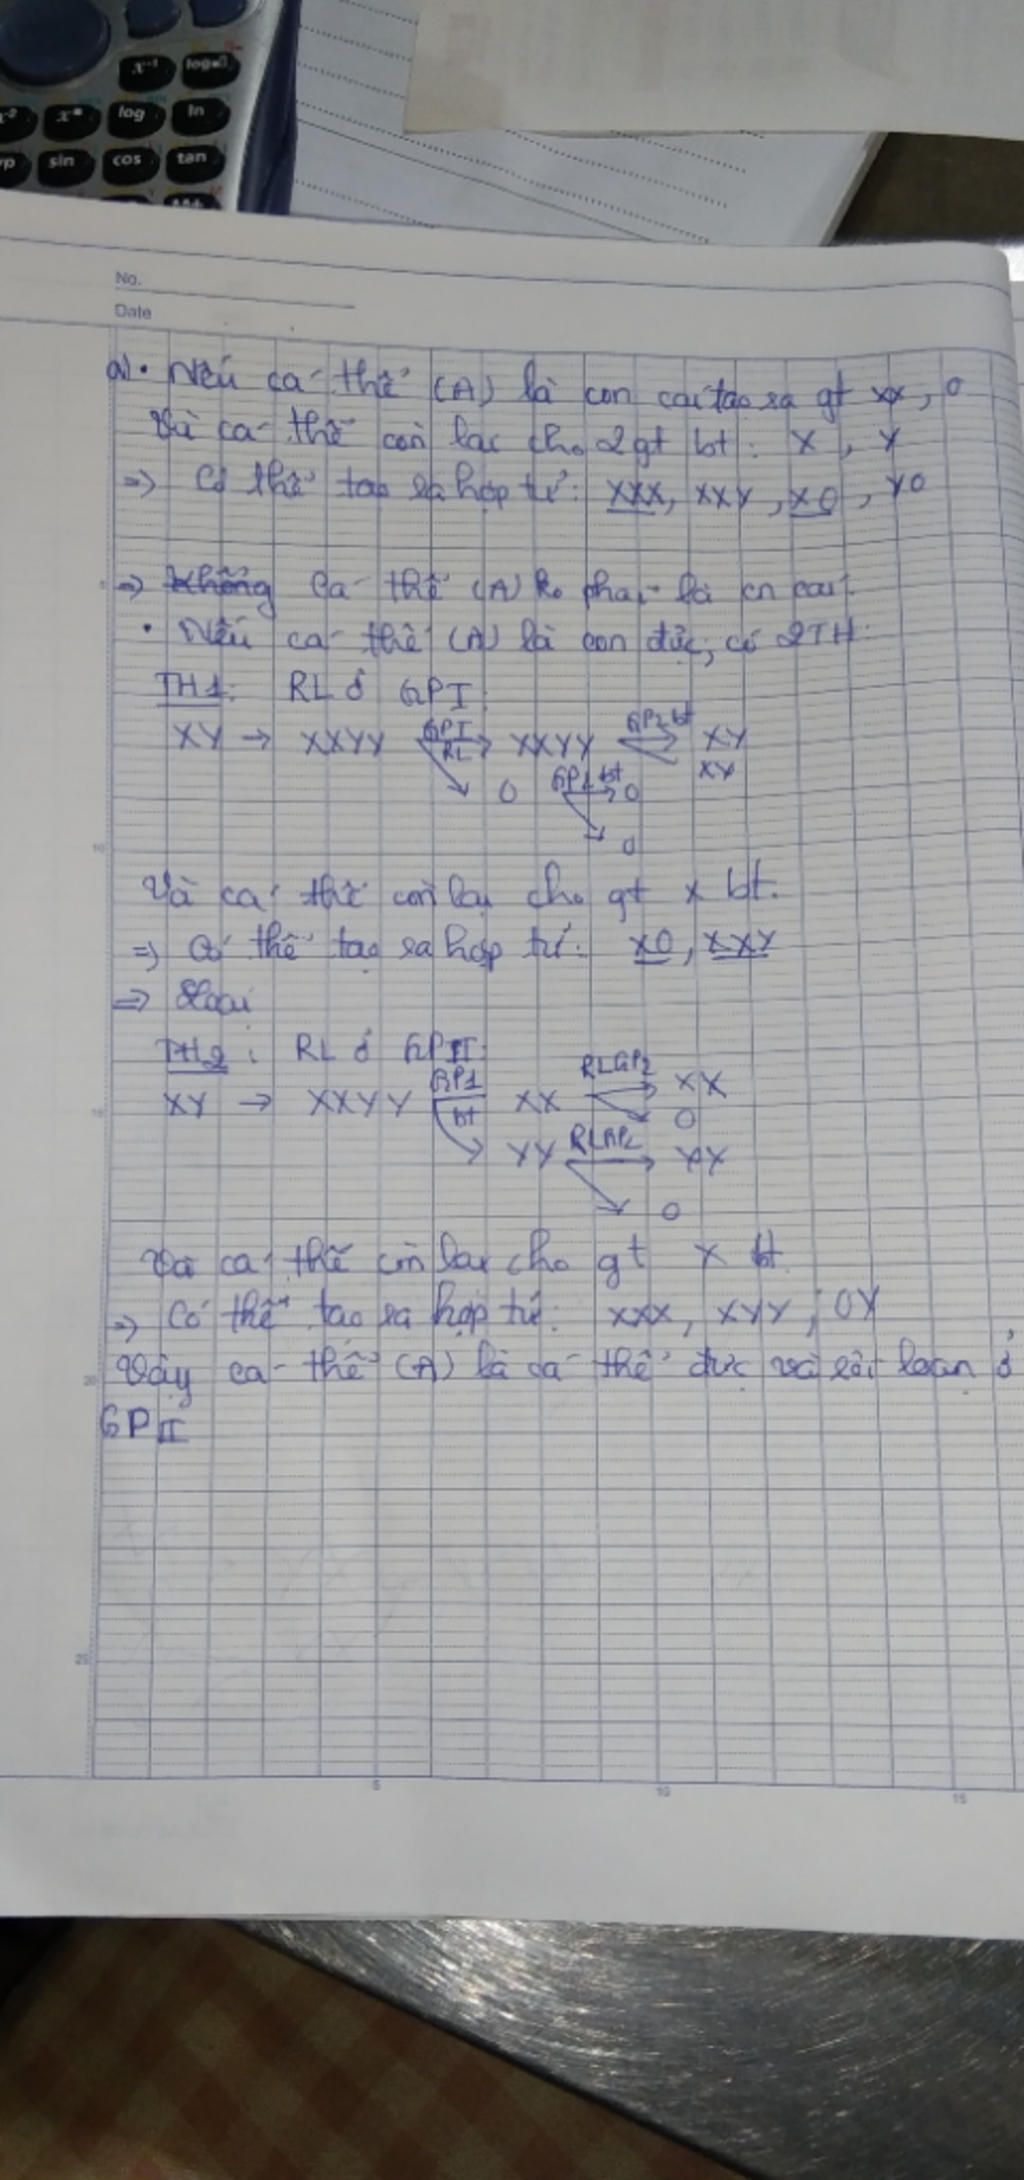 x⁻¹ log
x² xⁿ log ln
yp sin cos tan
No.
Date
a) • Nếu cá thể (A) là con cái tạo ra gt XX, O
Và cá thể còn lại cho 2 gt bt: X, Y
=> Có thể tạo ra hợp tử: XXX, XXY, XO, YO
=> Không Cá thể (A) ko phải là cn cái.
• Nếu cá thể (A) là con đực, có 2TH:
TH1: RL ở GPI
XY → XXYY GPI RL XXYY GP2 bt XY
XY
O GP2 bt O
O
Và cá thể còn lại cho gt X bt.
=> Có thể tạo ra hợp tử: XO, XXY
=> Loại
TH2: RL ở GPII
XY → XXYY GP1 bt XX RLGP2 XX
O
YY RLGP2 YY
O
Và cá thể còn lại cho gt X bt
=> Có thể tạo ra hợp tử: XXX, XYY, OX
Vậy cá thể (A) là cá thể đực và rối loạn ở
GPII
5
10
15
20
25
5 10 15